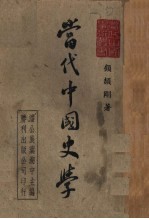 顧頡剛著
當代中國史學
潘公展葉溯中主編
勝利出版公司印行